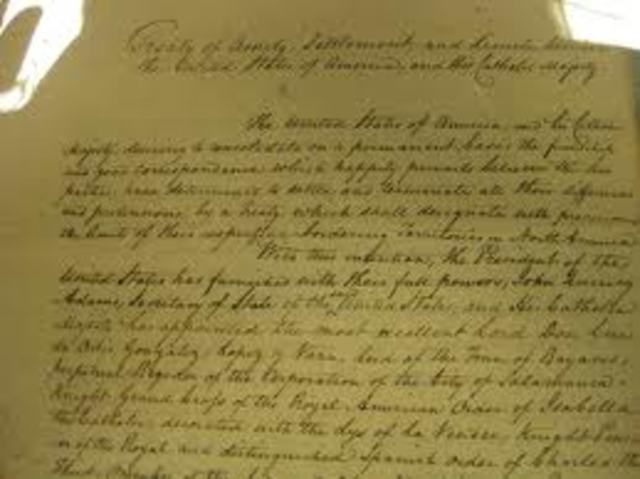 Treaty of Amity, Settlement and Limits between
the United States of America, and His Catholic Majesty
The United States of America and his Catholic
Majesty desiring to consolidate on a permanent basis the friendship
and good correspondence which happily prevails between the two
parties, have determined to settle and terminate all their differences
and pretensions by a Treaty, which shall designate with precision
the limits of their respective bordering Territories in North America
With this intention, the President of the
United States has furnished with their full powers, John Quincy
Adams, Secretary of State of the United States; and His Catholic
Majesty has appointed the most excellent Lord Don Luis
de Onis Gonzalez Lopez y Vara, Lord of the Town of Rayaces
Perpetual Regidor of the Corporation of the City of Salamanca
Knight Grand Cross of the Royal American Order of Isabella
the Catholic, decorated with the Lys of La Vendee, Knight
of the Royal and distinguished Spanish Order of Charles the
Third, Member of the